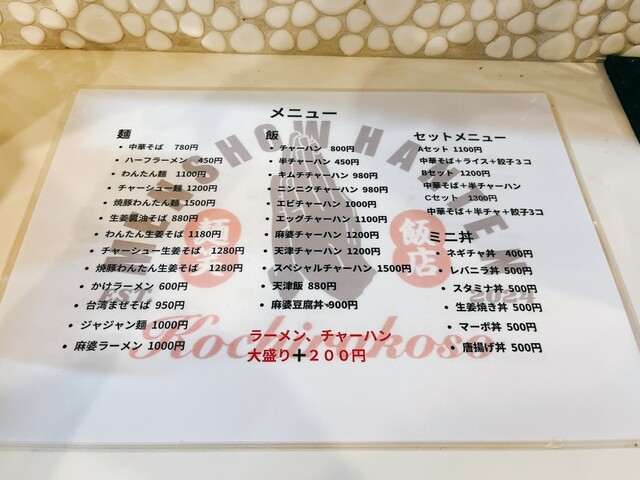 メニュー
麺
・中華そば 780円
・ハーフラーメン 450円
・わんたん麺 1100円
・チャーシュー麺 1200円
・焼豚わんたん麺 1500円
・生姜醤油そば 880円
・わんたん生姜そば 1180円
・チャーシュー生姜そば 1280円
・焼豚わんたん生姜そば 1280円
・かけラーメン 600円
・台湾まぜそば 950円
・ジャジャン麺 1000円
・麻婆ラーメン 1000円
飯
・チャーハン 800円
・半チャーハン 450円
・キムチチャーハン 980円
・ニンニクチャーハン 980円
・エビチャーハン 1000円
・エッグチャーハン 1100円
・麻婆チャーハン 1200円
・天津チャーハン 1200円
・スペシャルチャーハン 1500円
・天津飯 880円
・麻婆豆腐丼 900円
ラーメン、チャーハン
大盛り+200円
セットメニュー
Aセット 1100円
中華そば+ライス+餃子3コ
Bセット 1200円
中華そば+半チャーハン
Cセット 1300円
中華そば+半チャ+餃子3コ
ミニ丼
・ネギチャ丼 400円
・レバニラ丼 500円
・スタミナ丼 500円
・生姜焼き丼 500円
・マーボ丼 500円
・唐揚げ丼 500円
飯店
EST.
2024
Kochirakoso